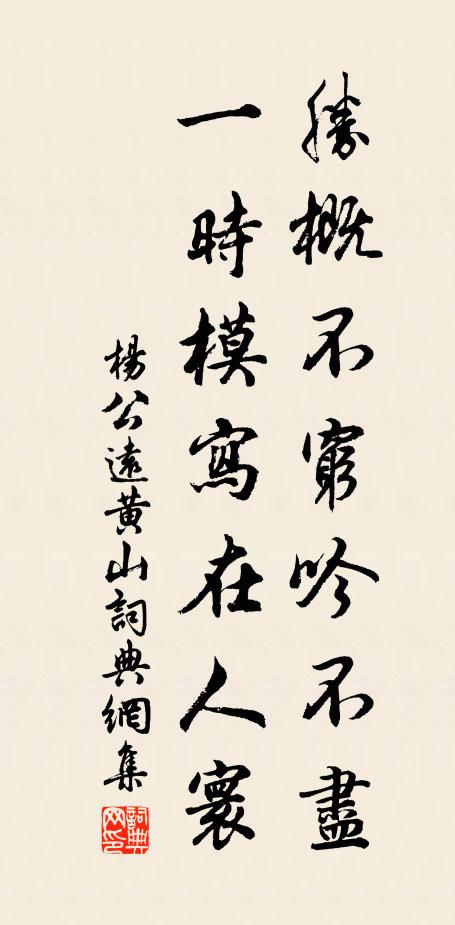 勝概不窮吟不盡
一時模寫在人寰
楊公遠黃山詞典網集
詞典网印